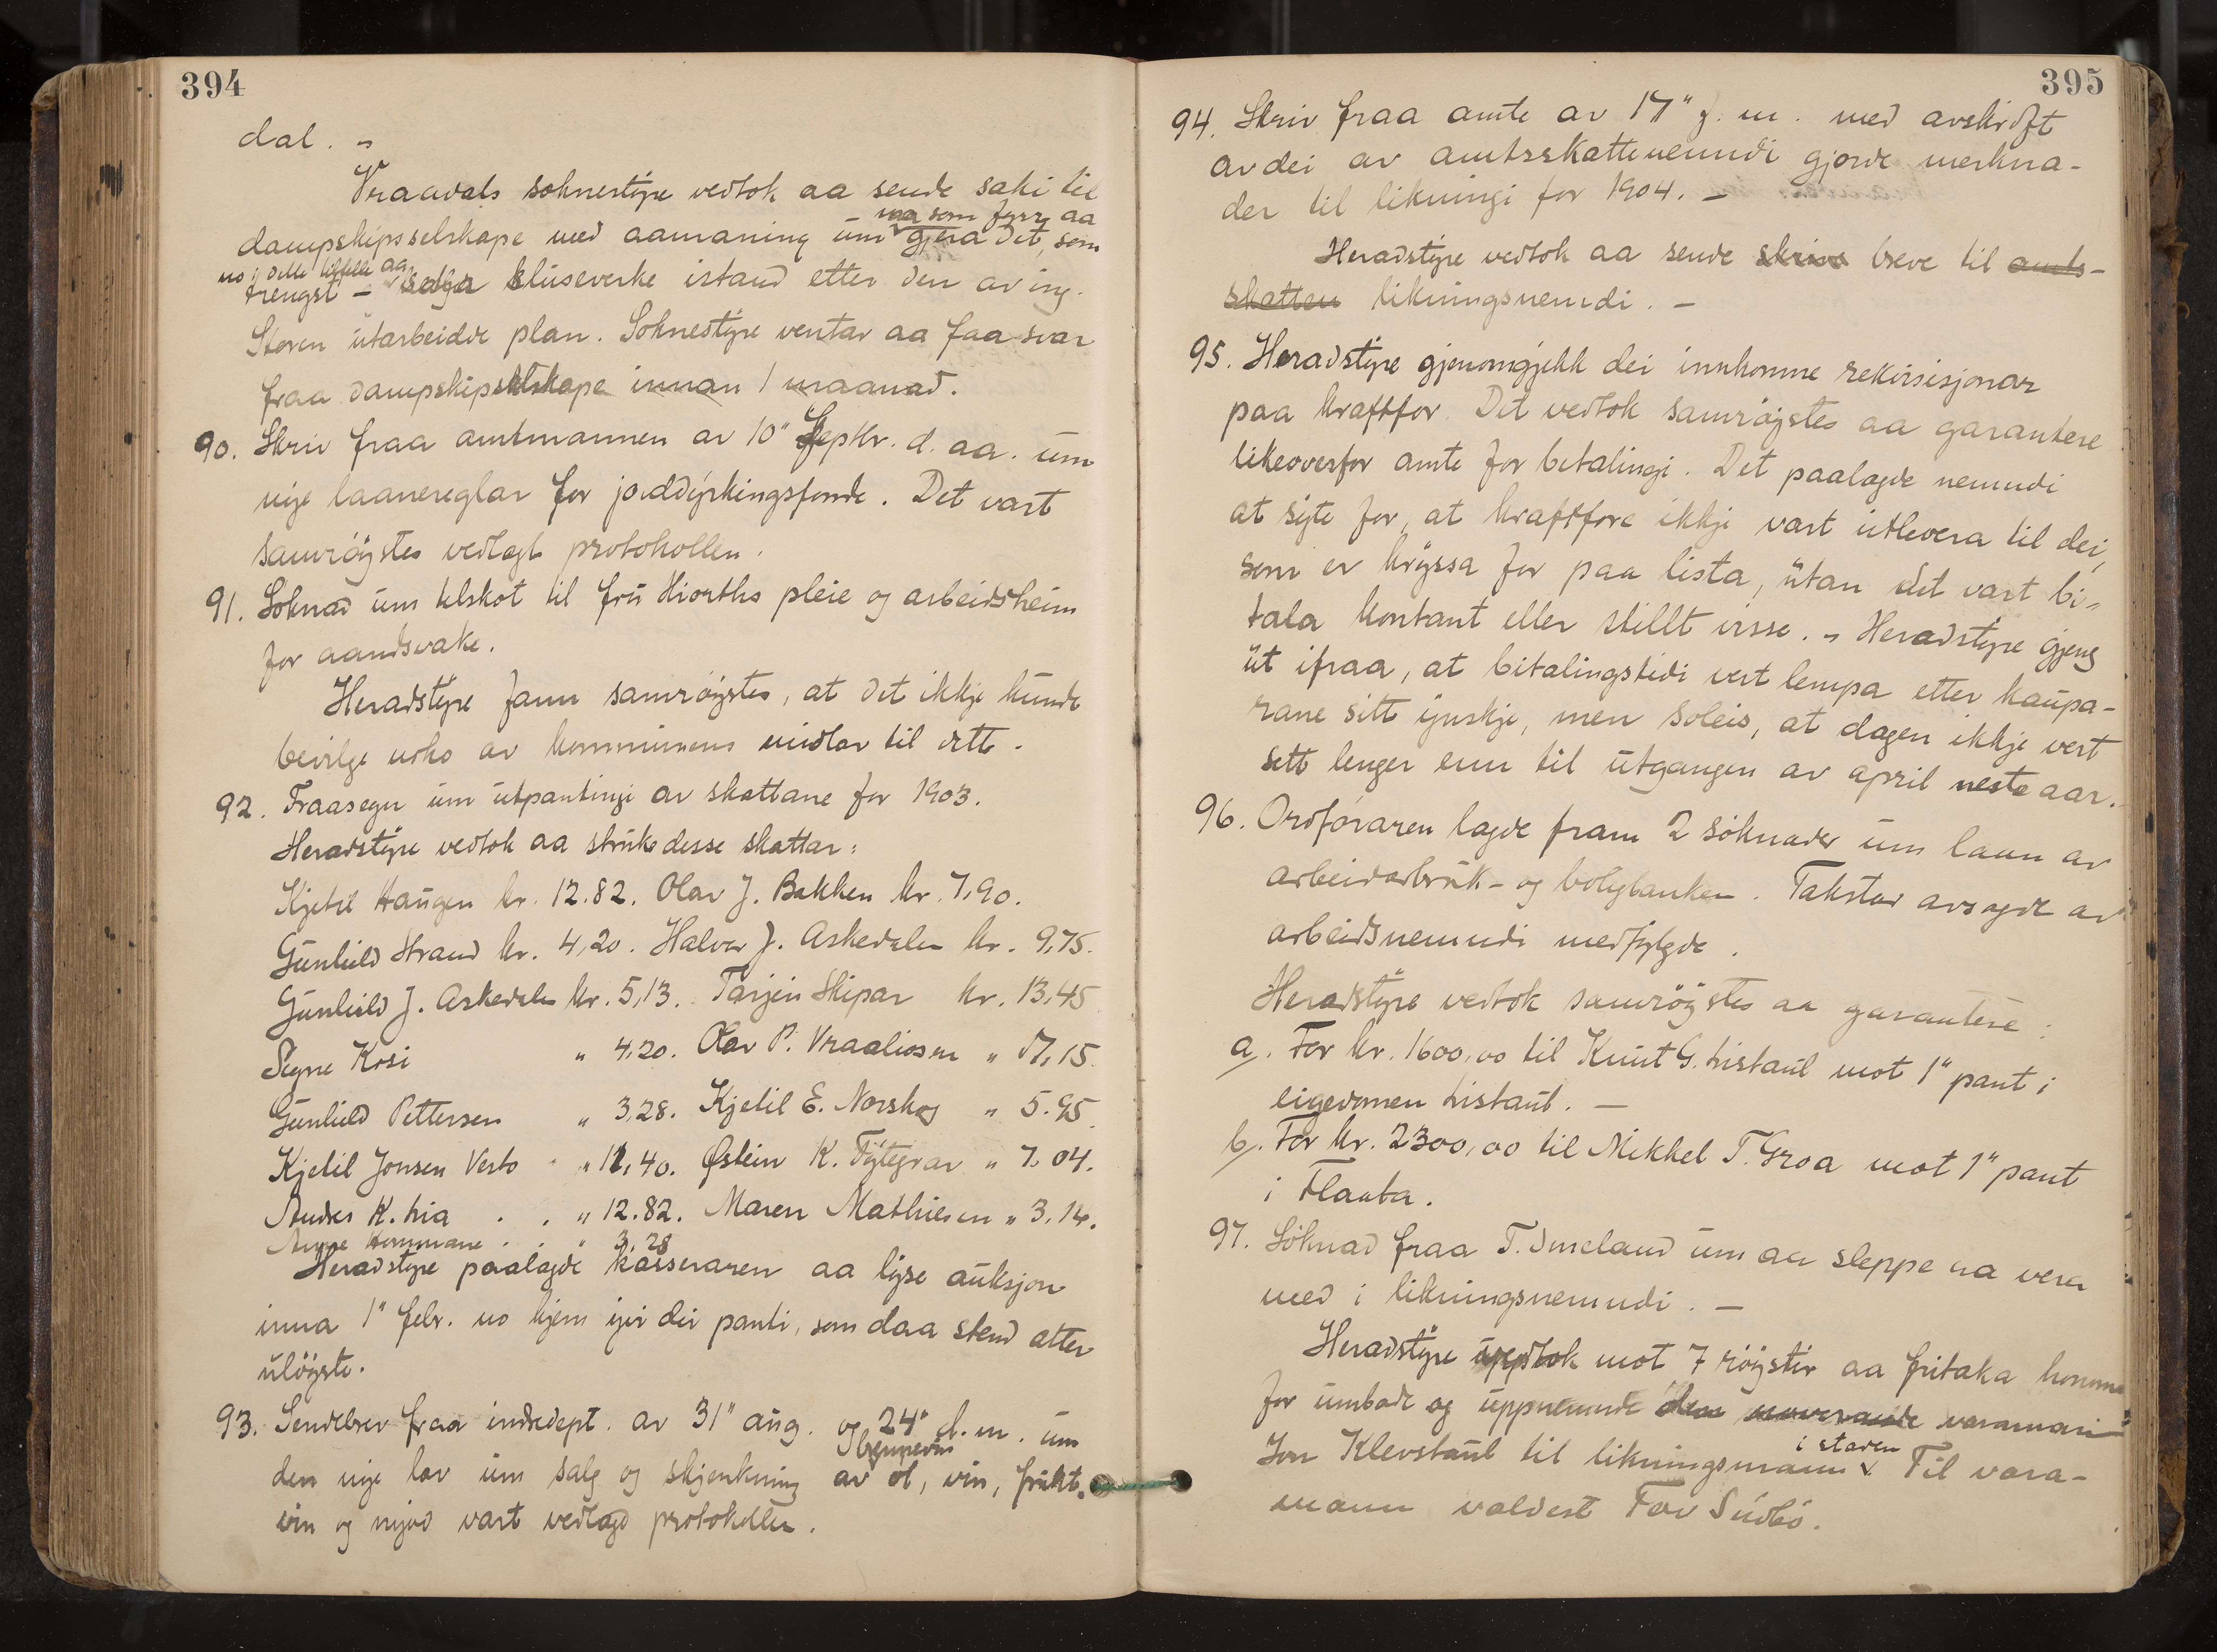 394
dal. –
Vraadals soknestyre vedtok aa sende saki til
dampskipsselskape med aamaning um naa som fyrr aa gjera det, som
trengst – no i dette tilfelle aa setja sluseverke istand etter den av ing.
Støren utarbeidde plan. Soknestyre ventar aa faa svar
fraa dampskipselskape innan 1 maanad.
90. Skriv fraa amtmannen av 10" Septbr. d. aa. um
nye laanereglar for jorddyrkingsfonde. Det vart
samrøystes vedlagt protokollen.
91. Soknad um tilskot til fru Hiorths pleie og arbeidsheim
for aandsvake.
Heradstyre fann samrøystes, at det ikkje kunde
bevilge noko av kommunens midlar til dette.
92. Fraasegn um utpantingi av skattane for 1903.
Heradstyre vedtok aa stryke desse skattar:
Kjetil Haugen kr. 12.82. Olav J. Bakken kr. 7,90.
Gunhild Strand kr. 4,20. Halvor J. Askedalen kr. 9,75.
Gunhild J. Askedalen kr. 5,13. Tarjei Skipar kr. 13,45
Signe Kosi " 4,20. Olav P. Vraaliosen " 17,15.
Gunhild Pettersen " 3,28. Kjetil E. Norskog " 5.95.
Kjetil Jonsen Vesto " 11,40. Østein K. Fytegrav " 7.04.
Andres K. Lia . . " 12.82. Maren Mathiesen " 3.14.
Anne Kommane . . " 3,28
Heradstyre paalagde kasseraren aa lyse auksjon
inna 1" febr. no kjem yvi dei panti, som daa stend atter
uløyste.
93. Sendebrev fraa indredept. av 31" aug. og 24" d. m. um
den nye lov um salg og skjenkning av brennevin ol, vin, frukt-
vin og mjød vart vedlagd protokollen.
395
94. Skriv fraa amte av 17" f. m. med avskrift
av dei av amtsskattenemndi gjorde merkna-
der til likningi for 1904. –
Heradstyre vedtok aa sende skrive breve til amts-
skatten likningsnemdi. –
95. Heradstyre gjenomgjekk dei innkomne rekvisisjonar
paa kraftfor. Det vedtok samrøystes aa garantere
likeoverfor amte for betalingi. Det paalagde nemndi
at syte for, at kraftfore ikkje vart utlevera til dei,
som er kryssa for paa lista, utan det vart bi-
tala kontant eller stillt visse. – Heradstyre gjeng
ut ifraa, at bitalingstidi vert lempa etter kaupa-
rane sitt ynskje, men soleis, at dagen ikkje vert
sett lenger enn til utgangen av april neste aar.
96. Ordføraren lagde fram 2 søknader um laan av
arbeidarbruk- og boligbanken. Takstar avsagde av
arbeidsnemndi medfylgde.
Heradstyre vedtok samrøystes aa garantere:
a/. For kr. 1600,00 til Knut G. Listaul mot 1" pant i
eigedomen Listaul. –
b/. For kr. 2300,00 til Mikkel T. Groa mot 1" pant
i Flaaba.
97. Søknad fraa T. Smeland um aa sleppe aa vera
med i likningsnemndi. –
Heradstyre vedtok mot 7 røyster aa fritaka honom
for umbode og uppnemnde den noverande varamann
Jon Klevstaul til likningsmann i staden. Til vara-
mann valdest Tov Sudbø.